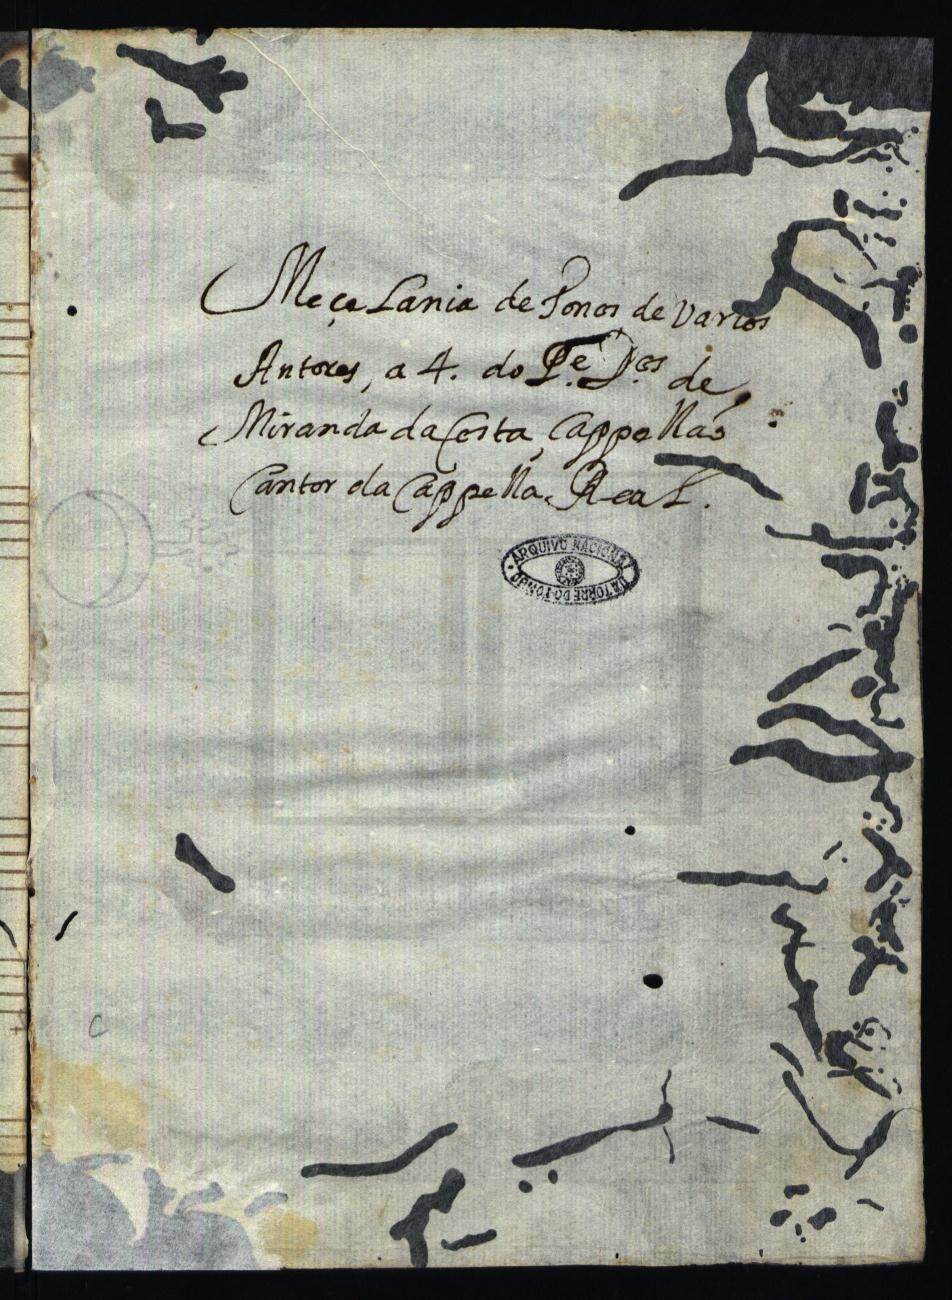 MeçeLania de Tonos de Varios
Autores, a 4. do P.e D.os de
Miranda da Costa, Cappellaõ
Cantor da Cappella Real.
ARQUIVO NACIONAL
DA TORRE DO TOMBO
C